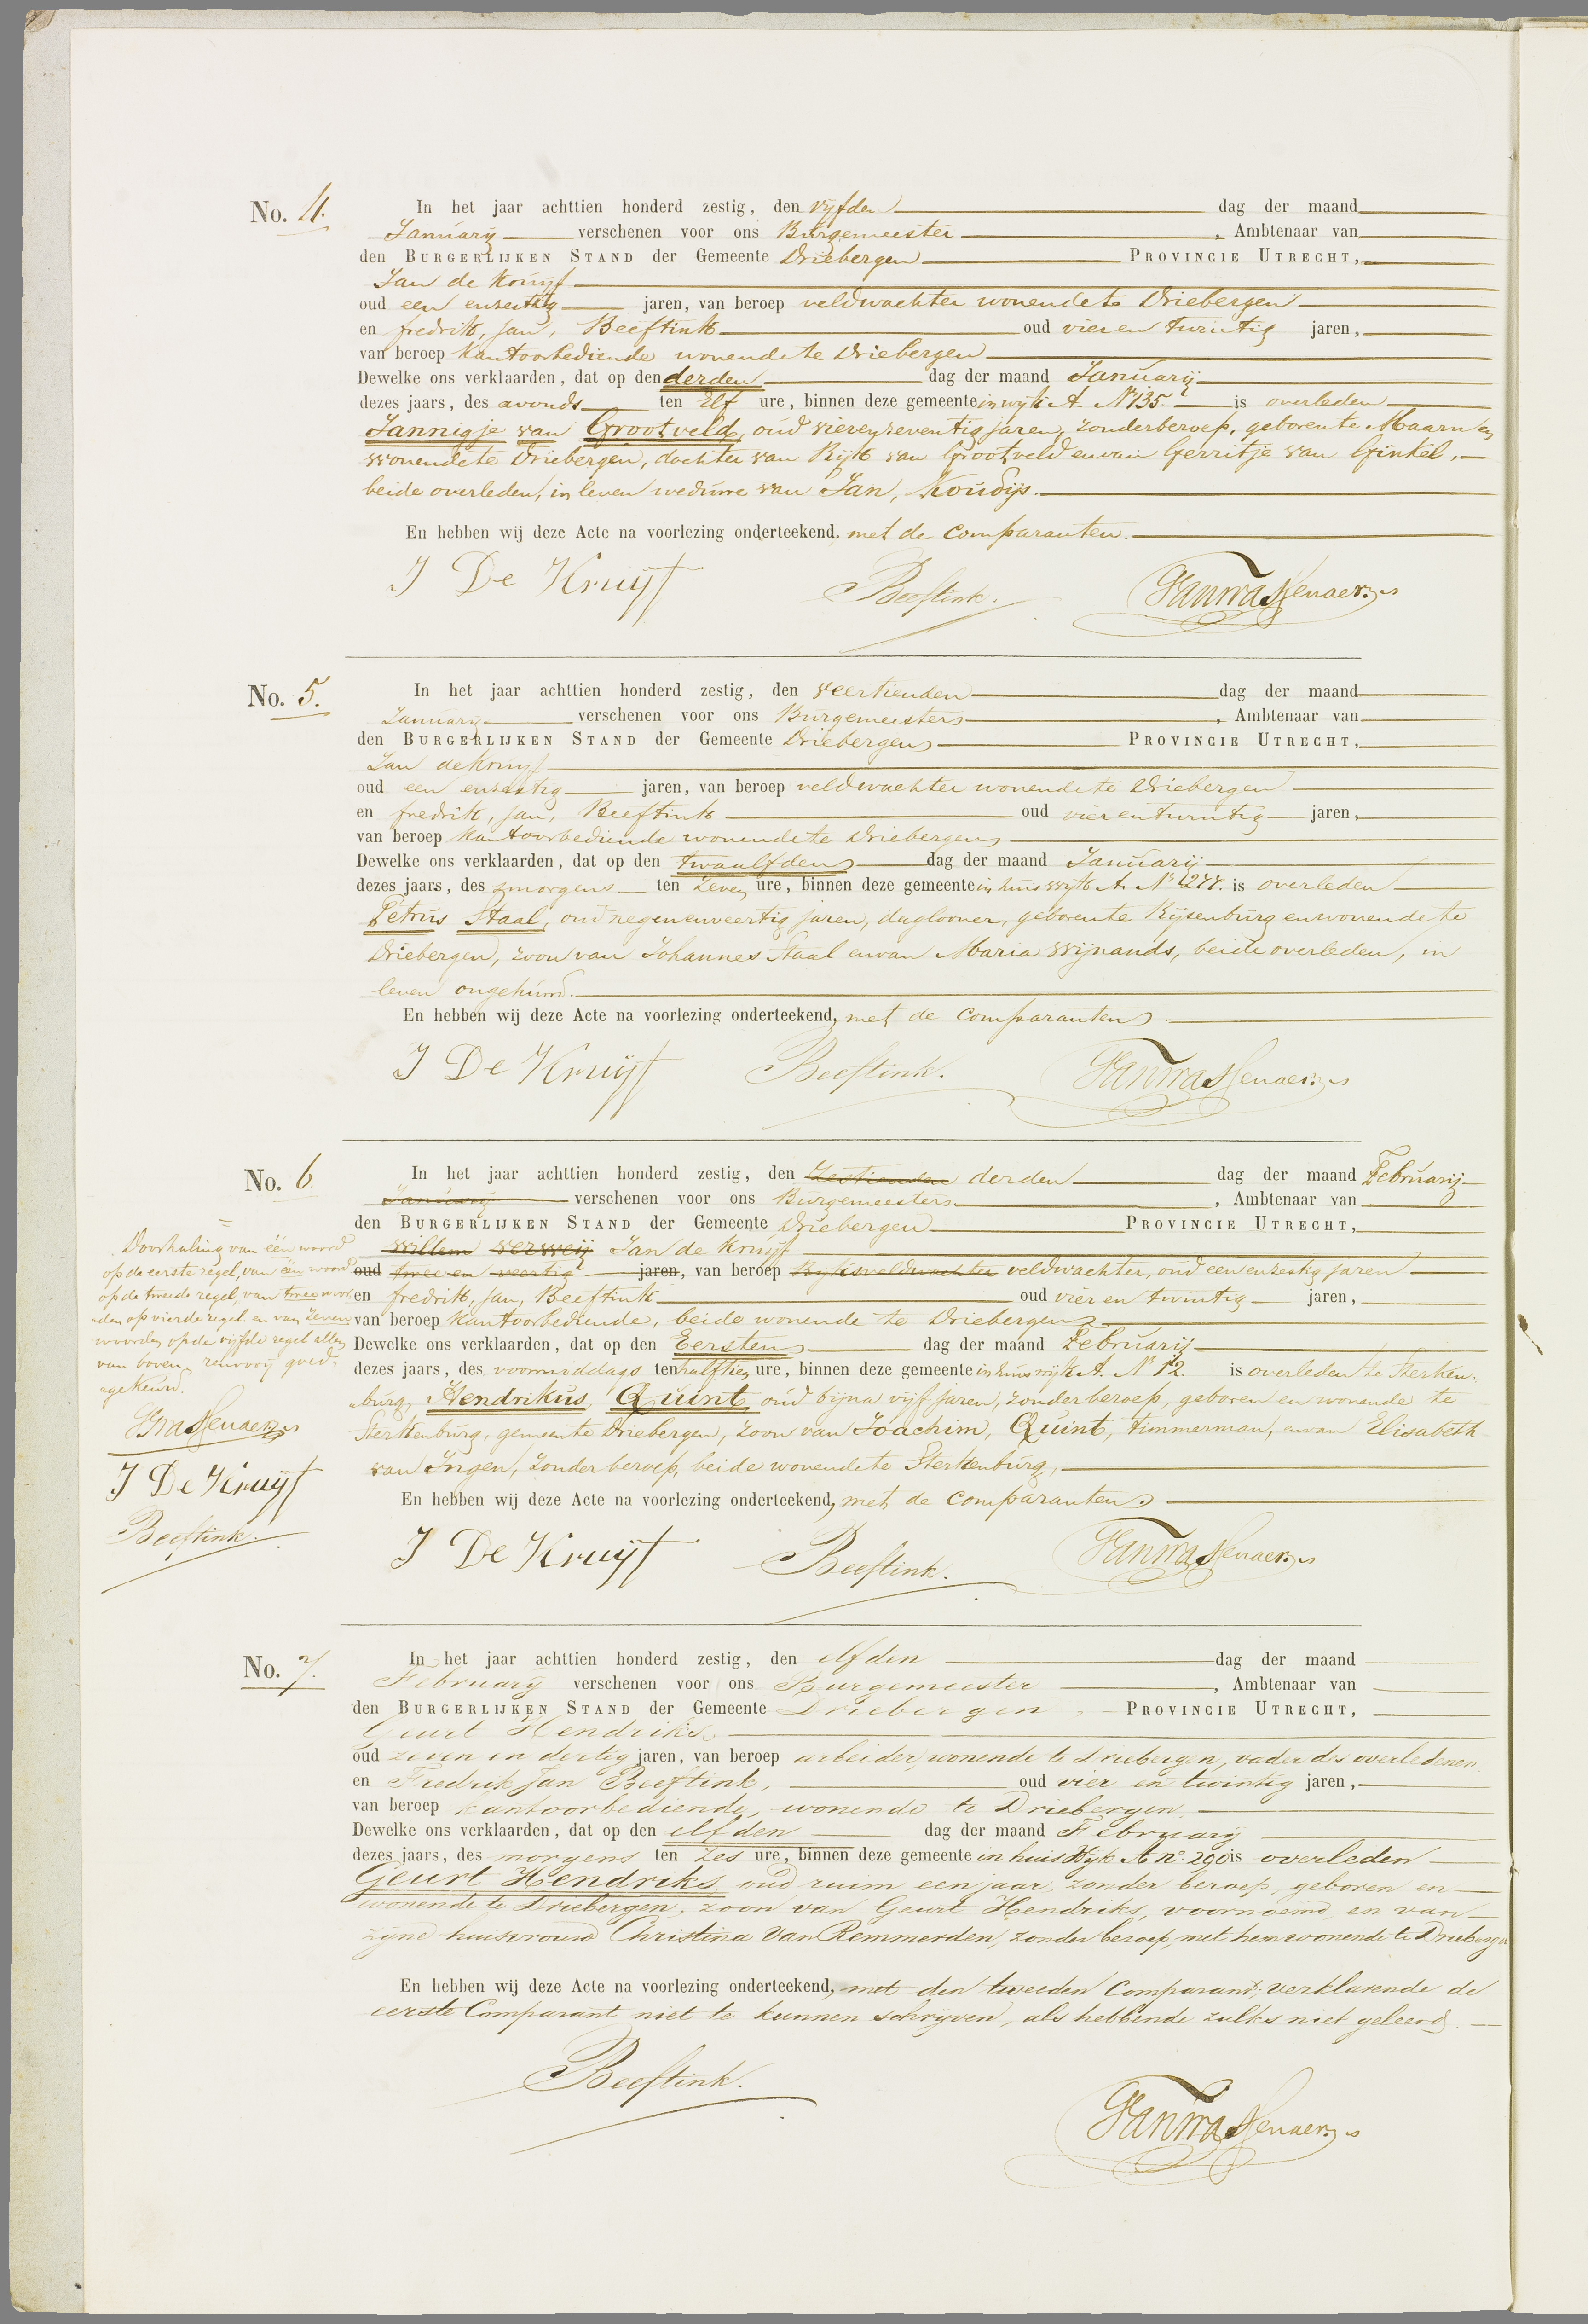 No. 4.
In het jaar achttien honderd zestig, den vyfden dag der maand
January verschenen voor ons Burgemeester, Ambtenaar van
den BURGERLIJKEN STAND der Gemeente Driebergen PROVINCIE UTRECHT,
Jan de Kruyf
oud een enzestig jaren, van beroep veldwachter wonende te Driebergen
en fredrik, Jan, Beeftink oud vier en twintig jaren,
van beroep Kantoorbediende wonende te Driebergen
Dewelke ons verklaarden, dat op den derden dag der maand Januarij
dezes jaars, des avonds ten Elf ure, binnen deze gemeente in wyk A. No 135. is overleden
Jannigje van Grootveld, oud vierenzeventig jaren, zonder beroep, geboren te Maarn en
wonende te Driebergen, dochter van Rijk van Grootveld en van Gerritje van Ginkel,
beide overleden, in leven weduwe van Jan, Koudijs.
En hebben wij deze Acte na voorlezing onderteekend, met de comparanten.
J De Kruijf Beeftink.
No. 5.
In het jaar achttien honderd zestig, den veertienden dag der maand
January verschenen voor ons Burgemeester, Ambtenaar van
den BURGERLIJKEN STAND der Gemeente Driebergen PROVINCIE UTRECHT,
Jan de Kruyf
oud een enzestig jaren, van beroep veldwachter wonende te Driebergen
en fredrik, Jan, Beeftink oud vier en twintig jaren,
van beroep Kantoorbediende wonende te Driebergen
Dewelke ons verklaarden, dat op den twaalfden dag der maand Januarij
dezes jaars, des smorgens ten Zeven ure, binnen deze gemeente in huis wyk A. No 277. is overleden
Petrus Staal, oud negenenveertig jaren, daglooner, geboren te Rijsenburg en wonende te
Driebergen, zoon van Johannes Staal en van Maria Wijnands, beide overleden, in
leven ongehuwd.
En hebben wij deze Acte na voorlezing onderteekend, met de comparanten.
J De Kruijf Beeftink.
No. 6.
In het jaar achttien honderd zestig, den Zestienden derden dag der maand Februarij
Januarij verschenen voor ons Burgemeester, Ambtenaar van
den BURGERLIJKEN STAND der Gemeente Driebergen PROVINCIE UTRECHT,
Willem Verweij Jan de Kruijf
oud twee en veertig jaren, van beroep Ryksveldwachter veldwachter, oud een enzestig jaren
en fredrik, Jan, Beeftink oud vier en twintig jaren,
van beroep Kantoorbediende, beide wonende te Driebergen
Dewelke ons verklaarden, dat op den Eersten dag der maand Februarij
dezes jaars, des voormiddags ten halftien ure, binnen deze gemeente in huis wijk A. No 12. is overleden te Sterken-
burg, Hendrikus, Quint, oud bijna vijf jaren, zonder beroep, geboren en wonende te
Sterkenburg, gemeente Driebergen, zoon van Joachim, Quint, timmerman, en van Elisabeth
van Ingen, zonder beroep, beide wonende te Sterkenburg,
En hebben wij deze Acte na voorlezing onderteekend, met de comparanten.
J De Kruijf Beeftink.
Doorhaling van één woord
op de eerste regel, van één woord
op de tweede regel, van twee woor-
den op vierde regel en van zeven
woorden op de vijfde regel allen
van boven, renvooij goed-
gekeurd.
J De Kruijf
Beeftink.
No. 7.
In het jaar achttien honderd zestig, den elfden dag der maand
February verschenen voor ons Burgemeester, Ambtenaar van
den BURGERLIJKEN STAND der Gemeente Driebergen PROVINCIE UTRECHT,
Geurt Hendriks
oud zeven en dertig jaren, van beroep arbeider, wonende te Driebergen, vader des overledenen
en Fredrik Jan Beeftink, oud vier en twintig jaren,
van beroep kantoorbediende, wonende te Driebergen
Dewelke ons verklaarden, dat op den elfden dag der maand February
dezes jaars, des morgens ten zes ure, binnen deze gemeente in huis Wyk A no. 290 is overleden
Geurt Hendriks, oud ruim een jaar, zonder beroep, geboren en
wonende te Driebergen, zoon van Geurt Hendriks, voornoemd, en van
zyne huisvrouw Christina Van Remmerden, zonder beroep, met hem wonende te Driebergen
En hebben wij deze Acte na voorlezing onderteekend, met den tweeden Comparant, verklarende de
eerste Comparant niet te kunnen schryven, als hebbende zulks niet geleerd.
Beeftink.